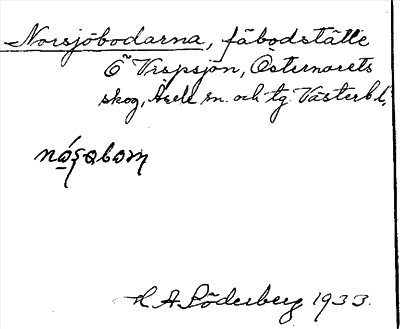 Norsjöbodarna, fäbodställe
Ö Vispsjön, Östernorets
skog, Åsele sn. och tg. Västerb l.
nóṣabom
H A Söderberg 1933.